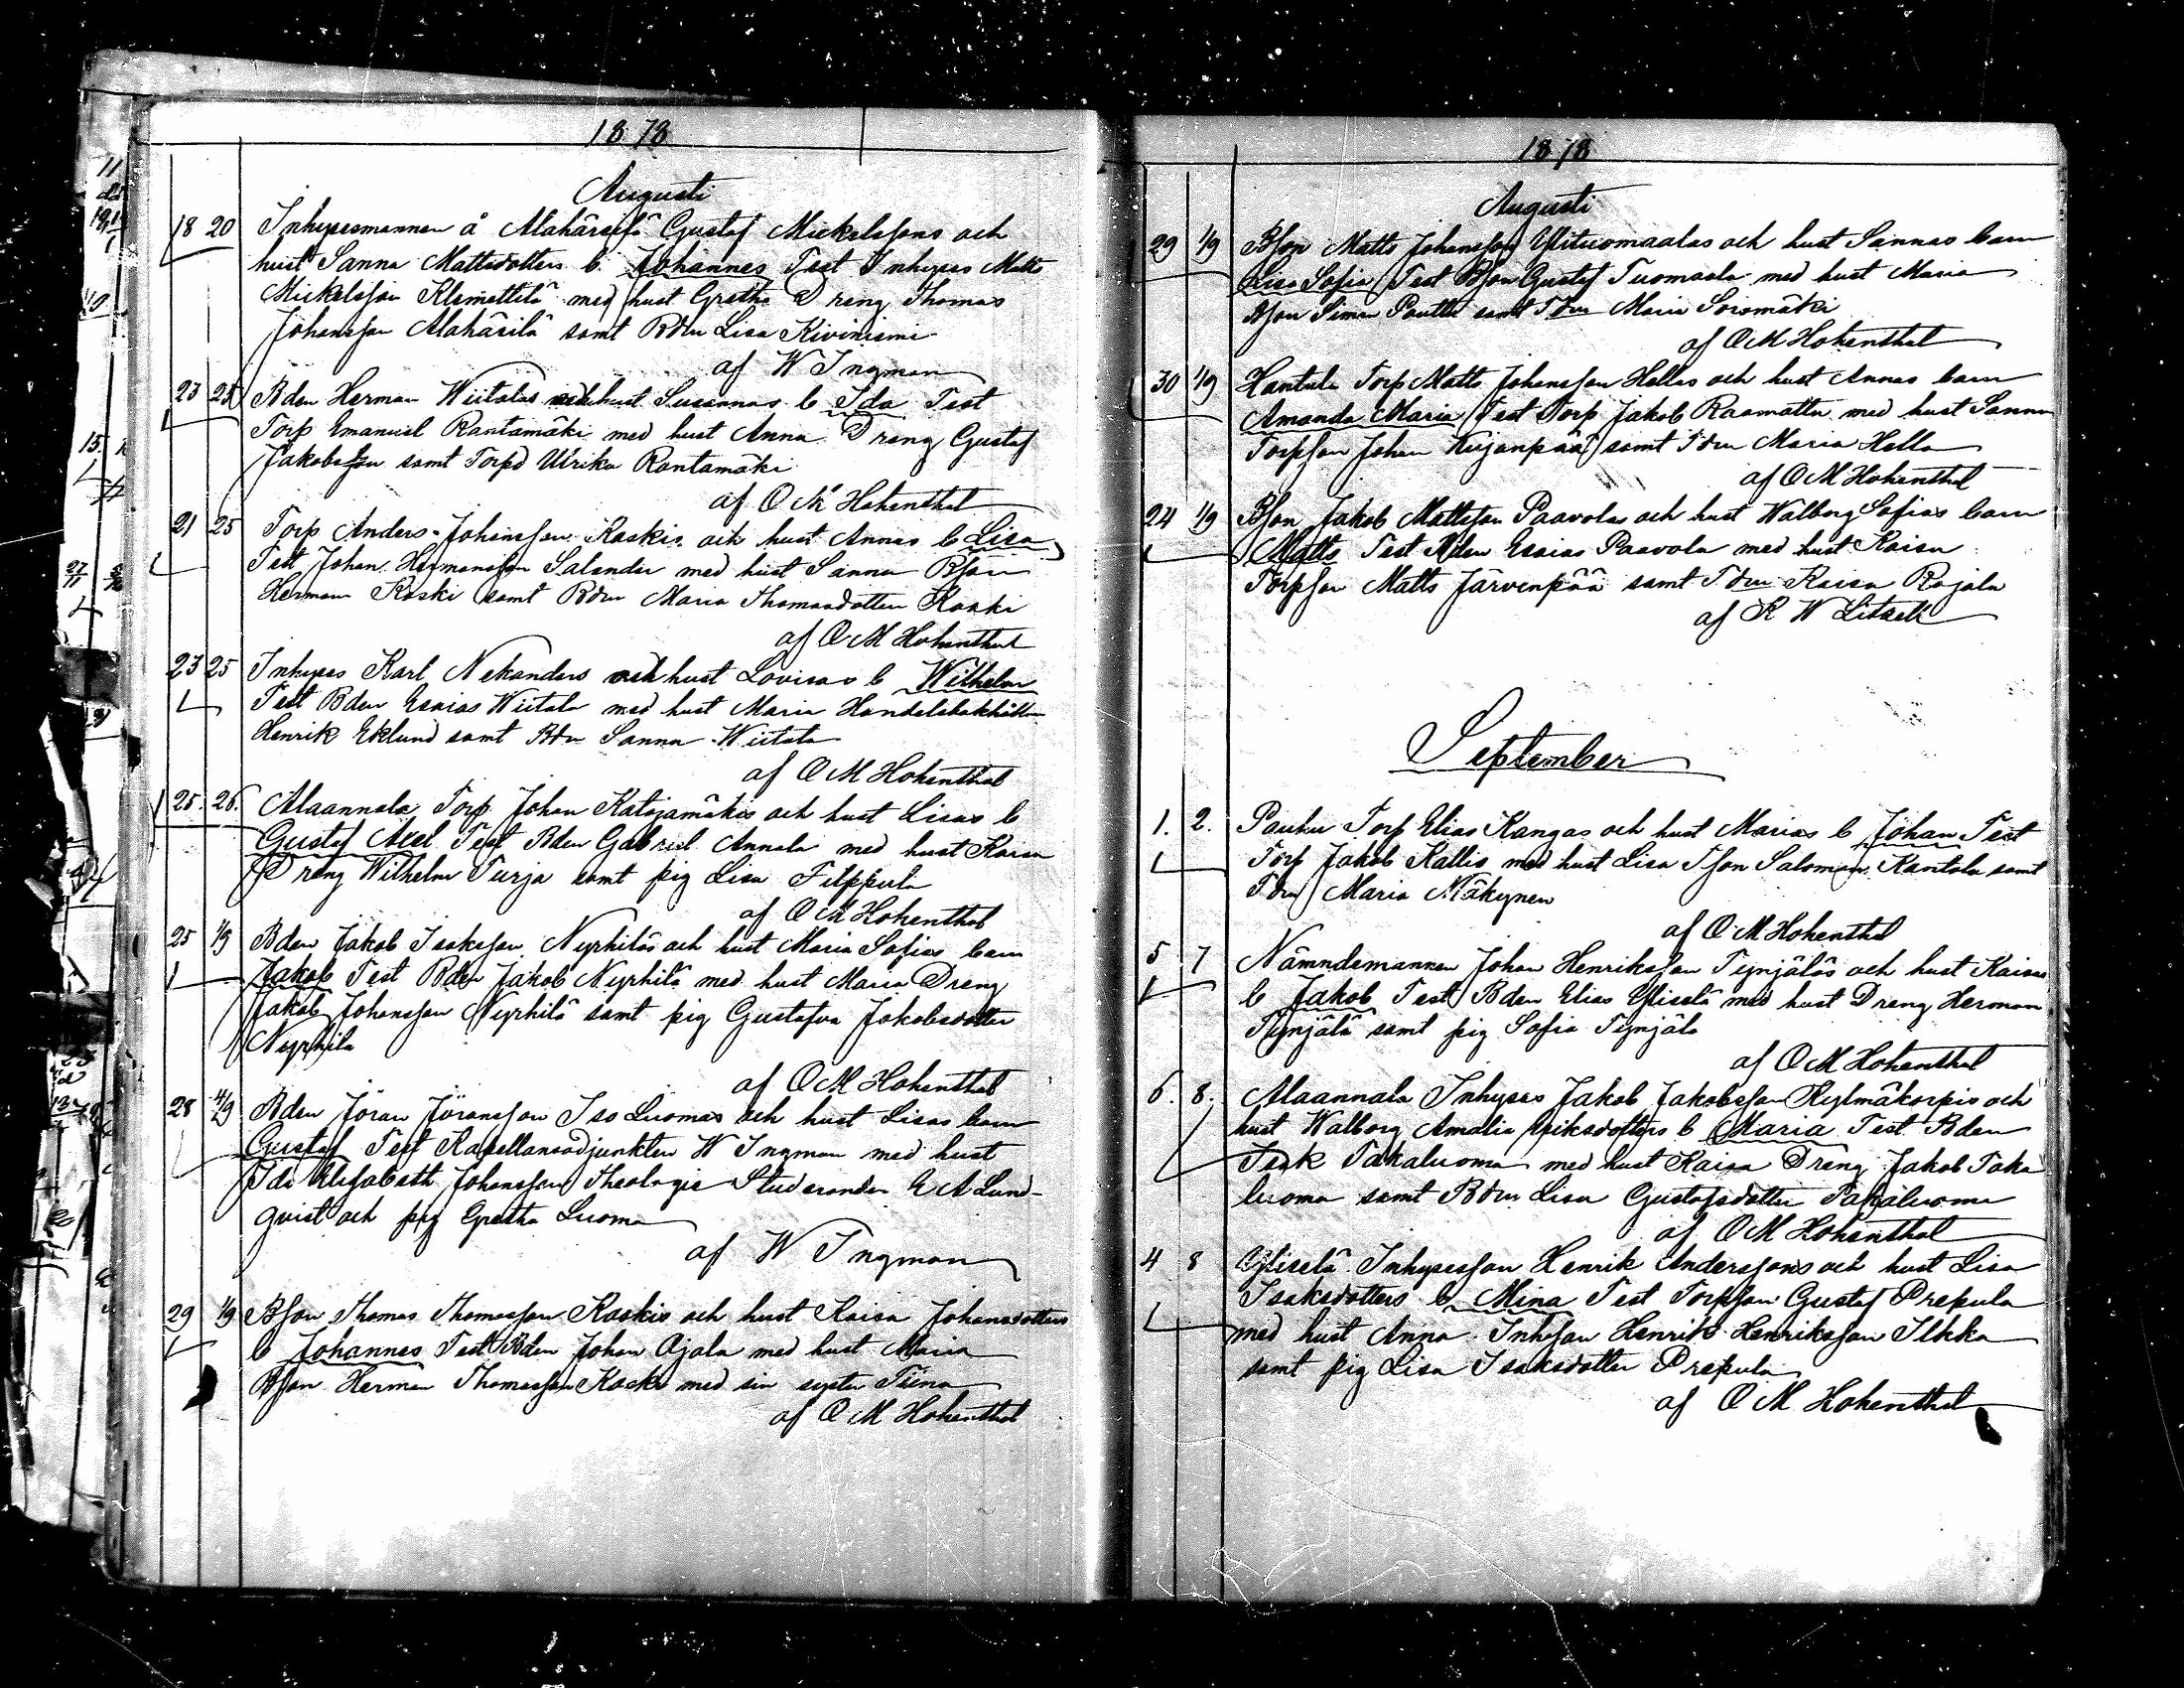 1878
Augusti
18 20 Inhysesmannen å Alahärsilä Gustaf Mickelssons och
hust Sanna Mattsdotters b. Johannes Test Inhyses Matts
Mickelsson Klemettilä med hust Gretha Dreng Thomas
Johansson Alahärsilä samt Bdtr Lisa Kiviniemi
af W Ingman
23 25 Bden Herman Wiitalas och hust Susannas b Ida Test
Torp Emanuel Rantamäki med hust Anna Dreng Gustaf
Jakobsson samt Torpd Ulrika Rantamäki
af O M Hohenthal
21 25 Torp Anders Johansson Koskis och hust Annas b Lisa
Test Johan Hermansson Salander med hust Sanna Bson
Herman Koski samt Bdtr Maria Thomasdotter Koski
af O M Hohenthal
23 25 Inhyses Karl Nekanders och hust Lovisas b Wilhelm
Test Bden Esaias Wiitala med hust Maria Handelsbokhålln
Henrik Eklund samt Bdtr Sanna Wiitala
af O M Hohenthal
25. 26. Alaannala Torp Johan Katajamäkis och hust Lisas b
Gustaf Axel Test Bden Gabriel Annala med hust Kaisa
Dreng Wilhelm Turja samt pig Lisa Filppula
af O M Hohenthal
25 1/9 Bden Jakob Isaksson Nyrhiläs och hust Maria Sofias barn
Jakob Test Bden Jakob Nyrhilä med hust Maria Dreng
Jakob Johansson Nyrhilä samt pig Gustafva Jakobsdotter
Nyrhilä
af O M Hohenthal
28 4/9 Bden Jöran Jöransson Iso Luomas och hust Lisas barn
Gustaf Test Kapellansadjunkten W Ingman med hust
Ida Elisabeth Johansson Theologie Studeranden E A Lund-
qvist och pig Gretha Luoma
af W Ingman
29 1/9 Bson Thomas Thomasson Koskis och hust Kaisa Johansdotters
b Johannes Test Bden Johan Ojala med hust Maria
Bson Herman Thomasson Koski med sin syster Tiina
af O M Hohenthal
1878
Augusti
29 1/9 Bson Matts Johansson Ylituomaalas och hust Sannas barn
Lisa Sofia Test Bson Gustaf Tuomaala med hust Maria
Bson Simon Panttu samt Tdtr Maria Soromäki
af O M Hohenthal
30 1/9 Hantula Torp Matts Johansson Hellas och hust Annas barn
Amanda Maria Test Torp Jakob Raamattu med hust Sanna
Torpson Johan Kujanpää samt Tdtr Maria Hella
af O M Hohenthal
24 1/9 Bson Jakob Mattsson Paavolas och hust Walborg Sofias barn
Matts Test Bden Esaias Paavola med hust Kaisa
Torpson Matts Järvenpää samt Tdtr Kaisa Rajala
af K W Litzelli
September
1. 2. Pouhu Torp Elias Kangas och hust Marias b Johan Test
Torp Jakob Kallis med hust Lisa Tson Salomon Kantola samt
Tdtr Maria Mäkynen
af O M Hohenthal
5 7 Nämndemannen Johan Henriksson Tynjäläs och hust Kaisas
b Jakob Test Bden Elias Yliselä med hust Dreng Herman
Tynjälä samt pig Sofia Tynjälä
af O M Hohenthal
6. 8. Alaannala Inhyses Jakob Jakobsson Kylmäkorpis och
hust Walborg Amalia Eriksdotters b Maria Test Bden
Isak Takaluoma med hust Kaisa Dreng Jakob Taka
luoma samt Bdtr Lisa Gustafsdotter Takaluoma
af O M Hohenthal
4 8 Yliselä Inhysesson Henrik Anderssons och hust Lisa
Isaksdotters b Mina Test Torpson Gustaf Prepula
med hust Anna Inhson Henrik Henriksson Ilkka
samt pig Lisa Isaksdotter Prepula
af O M Hohenthal